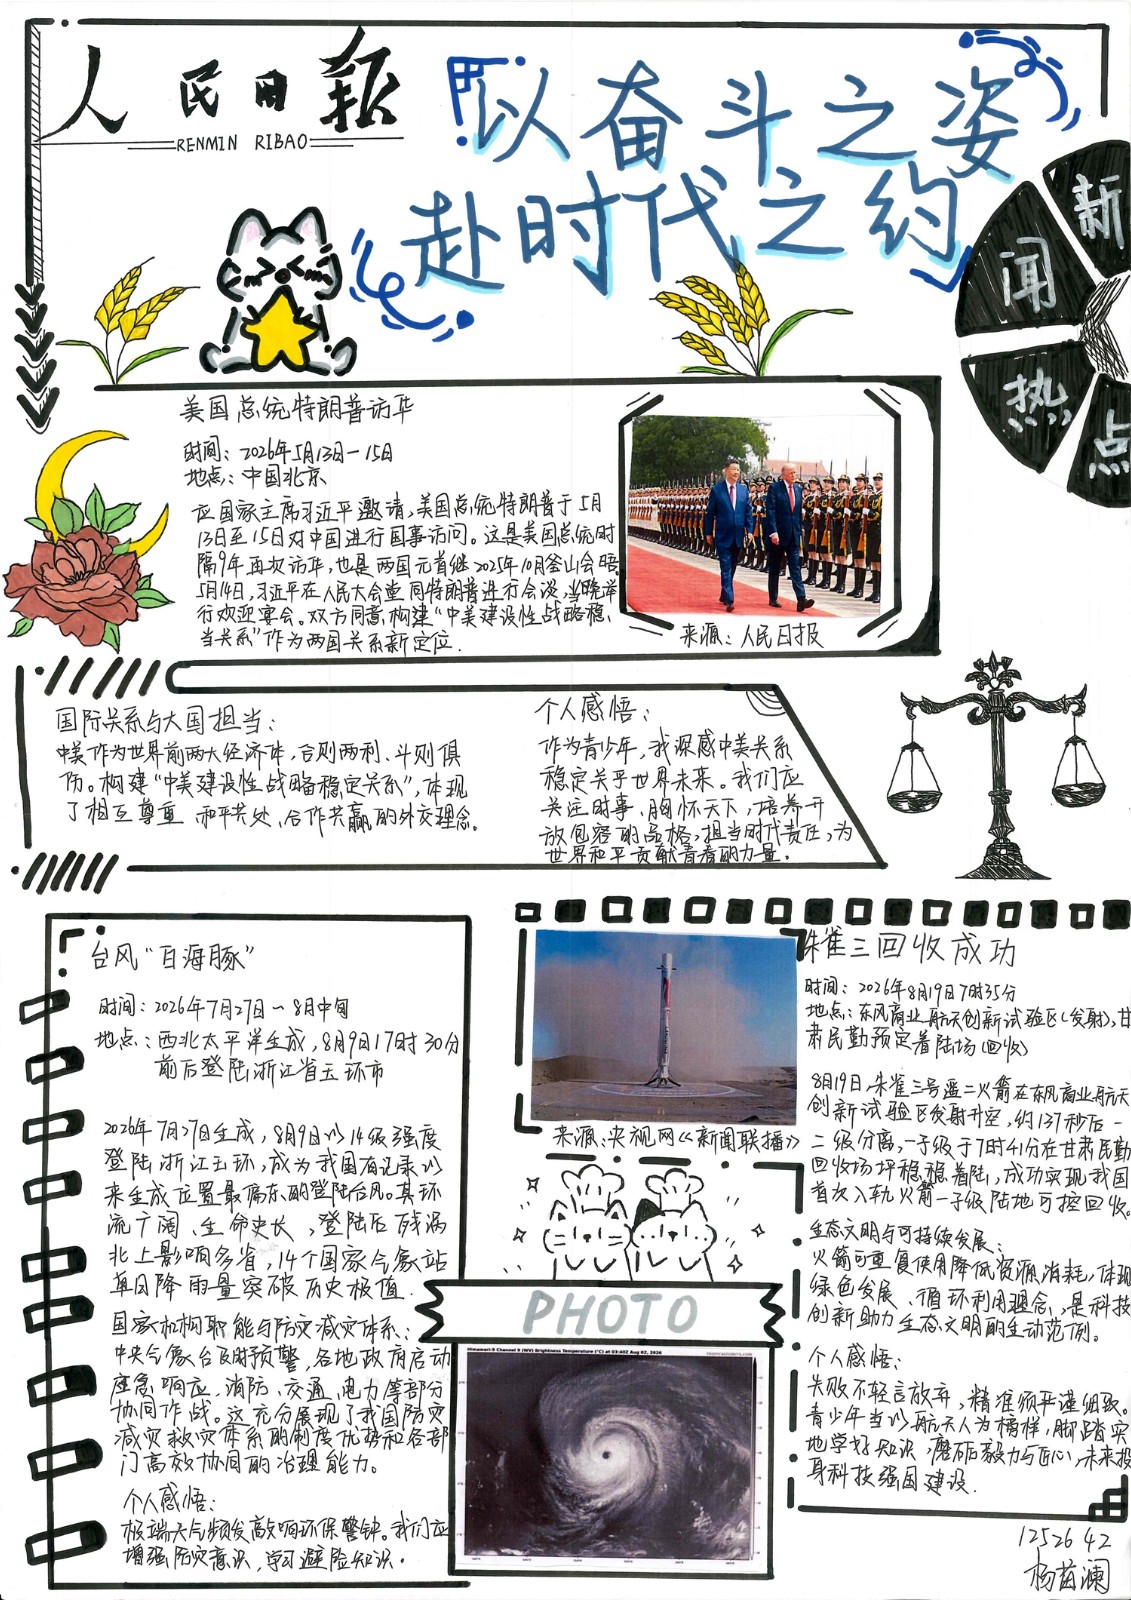 人民日报
RENMIN RIBAO
以奋斗之姿
赴时代之约
新闻热点
美国总统特朗普访华
时间：2026年5月13日—15日
地点：中国北京
应国家主席习近平邀请，美国总统特朗普于5月
13日至15日对中国进行国事访问。这是美国总统时
隔9年再次访华，也是两国元首继2025年10月釜山会晤
5月14日，习近平在人民大会堂同特朗普进行会谈，当晚举
行欢迎宴会。双方同意，构建“中美建设性战略稳
当关系”作为两国关系新定位.
来源：人民日报
国际关系与大国担当：
中美作为世界前两大经济体，合则两利、斗则俱
伤。构建“中美建设性战略稳定关系”，体现
了相互尊重 和平共处、合作共赢的外交理念。
个人感悟：
作为青少年，我深感中美关系
稳定关乎世界未来。我们应
关注时事、胸怀天下，培养开
放包容的品格，担当时代责任，为
世界和平贡献青春的力量。
台风“白海豚”
时间：2026年7月27日～8月中旬
地点：西北太平洋生成，8月9日17时30分
前后登陆浙江省玉环市
2026年7月27日生成，8月9日以14级强度
登陆浙江玉环，成为我国有记录以
来生成位置最偏东的登陆台风。其环
流广阔、生命史长，登陆后残涡
北上影响多省，14个国家气象站
单日降雨量突破历史极值.
国家机构职能与防灾减灾体系：
中央气象台及时预警，各地政府启动
应急响应，消防、交通、电力等部分
协同作战。这充分展现了我国防灾
减灾救灾体系的制度优势和各部
门高效协同的治理能力。
个人感悟：
极端天气频发敲响环保警钟。我们应
增强防灾意识，学习避险知识.
来源：央视网《新闻联播》
PHOTO
Himawari-9 Channel 9 (WV) Brightness Temperature (°C) at 03:40Z Aug 02, 2026
朱雀三回收成功
时间：2026年8月19日7时35分
地点：东风商业航天创新试验区（发射），甘
肃民勤预定着陆场（回收）
8月19日，朱雀三号遥二火箭在东风商业航天
创新试验区发射升空，约137秒后一
二级分离，一子级于7时41分在甘肃民勤
回收场坪稳稳着陆，成功实现我国
首次入轨火箭一子级陆地可控回收。
生态文明与可持续发展：
火箭可重复使用降低资源消耗，体现
绿色发展、循环利用理念，是科技
创新助力生态文明的生动范例。
个人感悟：
失败不轻言放弃，精准须严谨细致。
青少年当以航天人为榜样，脚踏实
地学好知识 磨砺毅力与匠心，未来投
身科技强国建设.
1252642
杨茵澜